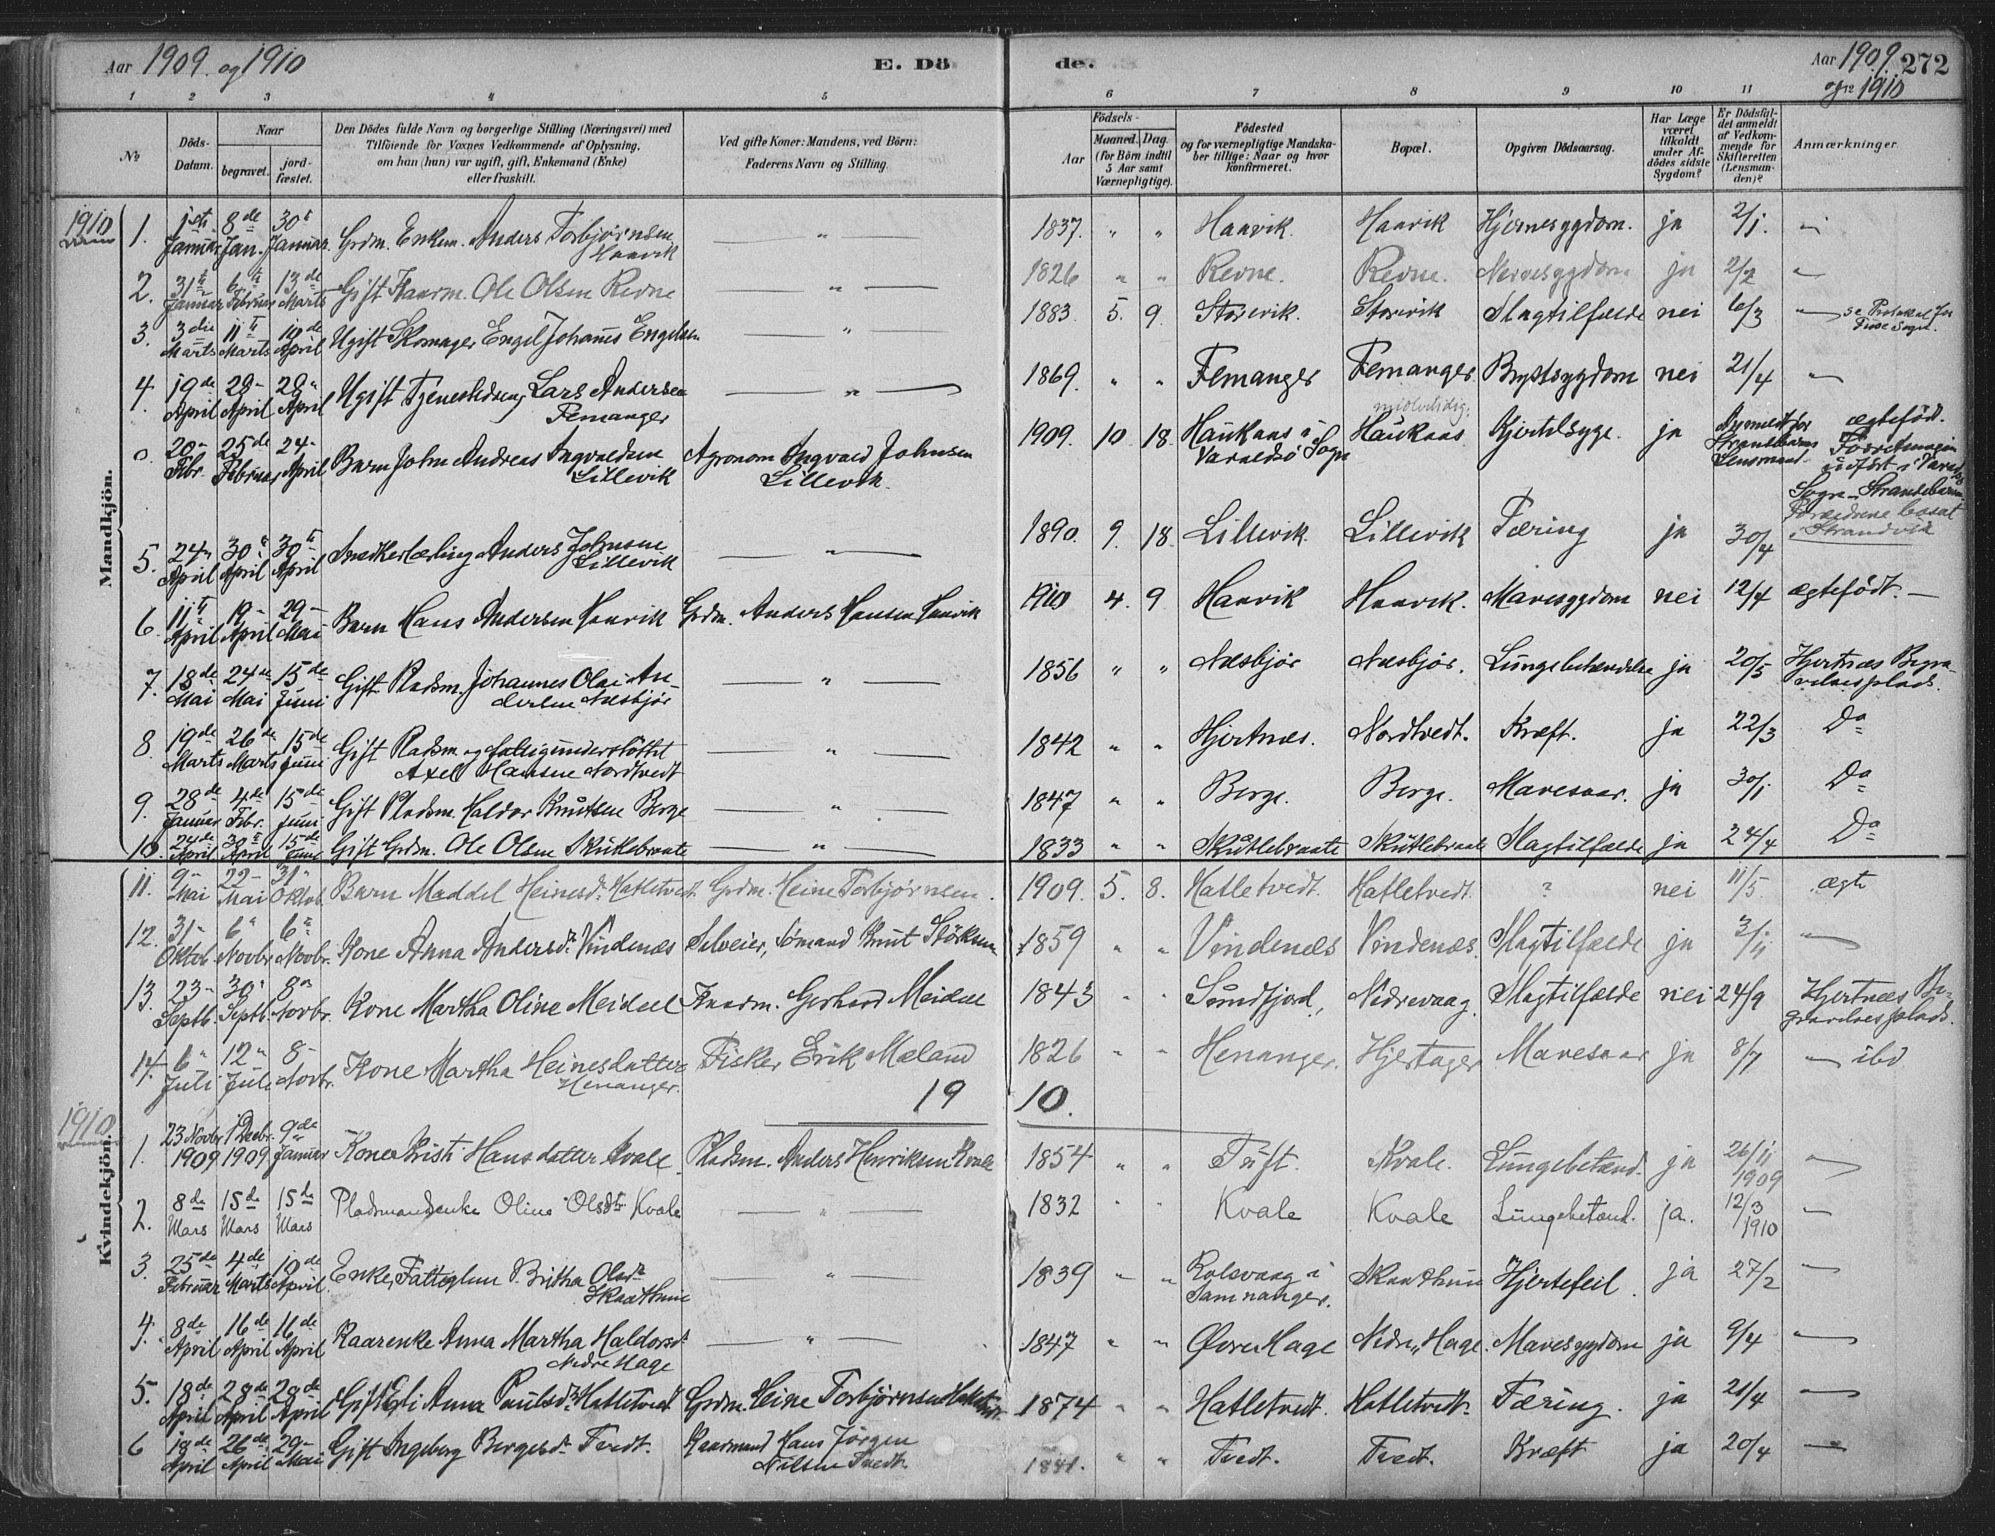 Aar 1909 og 1910 E. Dö de. Aar 1909 og 1910 272
1 2 3 4 5 6 7 8 9 10 11 12
No
Döds-Datum.
Naar
begravet.
jordfæstet.
Den Dödes fulde Navn og borgerlige Stilling (Næringsvei) med
Tilföiende for Voxnes Vedkommende af Oplysning.
om han (hun) var ugift, gift, Enkemand (Enke)
eller fraskilt.
Ved gifte Koner: Mandens, ved Börn:
Faderens Navn og Stilling.
Födsels-
Aar
Maaned. Dag.
(for Börn indtil
5 Aar samt
Værnepligtige).
Födested
og for værnepligtige Mandska-
ber tillige: Naar og hvor
konfirmeret.
Bopæl.
Opgiven Dödsaarsag.
Har Læge
været
tilkaldt
under Af-
dödes sidste
Sygdom?
Er Dödsfal-
det anmeldt
af Vedkom-
mende for
Skifteretten
(Lensman-
den)?
Anmærkninger.
1910
Mandkjön.
1. 1ste Januar 8de Jan. 30te Januar. Grdm. Enkem. Anders Torbjørnsen Haavik — " — 1837. " " Haavik. Haavik Hjernesygdom. ja 2/1. "
2. 31te Januar 6te Februar 13de Marts Gift Kaarm. Ole Olsen Revne — " — 1826 " " Revne. Revne. Nervesygdom ja 2/2 "
3. 3die Marts 11te Marts 10de April Ugift Skomager Engel Johannes Engelsen — " — 1883. 5. 9. Storevik. Storevik Slagtilfælde nei 6/3 " se Protokol for Fuse Sogn.
4. 19de April 29- April 29" April Ugift Tjenestedreng Lars Andersen Femanger — " — 1869. " " Femanger Femanger Brystsygdom nei 21/4 "
0. 20- Febr. 25de Februar 24- April Barn John Andreas Ingvaldsen Lillevik Agronom Ingvald Johnsen Lillevik. 1909. 10 18. Haukaas i Varaldsø Sogn midlertidig: Haukaas Kjertelsyge. ja for Strandebarms Lensmand. ægtefød. Sogn - Strandebarm bosat i Strandvik
5. 24" April 30te April 30te April Snedkerlærling Anders Johnsen Lillevik — " — 1890. 9. 18. Lillevik. Lillevik Tæring ja 30/4
6. 11te April 19- April 29- Mai Barn Hans Andersen Haavik Grdm. Anders Hansen Haavik 1910 4. 9 Haavik Haavik. Mavesygdom nei 12/4 ægtefødt. —
7. 18de Mai 24de Mai 15de Juni Gift Pladsm. Johannes Olai Andersen Næsbjør — " — 1856 " " Næsbjør Næsbjør. Lungebetændelse ja 20/5 Hjertnæs Begravelsesplads.
8. 19de Marts 26de Marts 15de Juni Gift Pladsm. og fattigunderstöttet Axel Hansen Nordtvedt — " — 1842 " " Hjertnes. Nordtvedt. Kræft. ja 22/3 Do
9. 28de Januar 4de Febr. 15de Juni Gift Pladsm. Haldor Knutsen Berge — " — 1847 " " Berge. Berge. Mavesaar. ja 30/1 Do
10. 24de April 30te April 15de Juni Gift Grdm. Ole Olsen Skutlebraate — " — 1833 " " Skutlebraate Skutlebraate Slagtilfælde ja 24/4 Do
11. 9- Mai 22- Mai 31" Oktob. Barn Maddel Heinesdr. Hatletvedt Grdm. Heine Torbjørnsen. 1909. 5. 8. Hatletvedt. Hatletvedt. ? nei 11/5 ægte
12. 31- Oktob. 6" Novbr. 6te Novbr. Kone Anna Andersdr. Vindenæs Selveier, Sømand Knut Störksen 1859 " " Vindenæs Vindenæs. Slagtilfælde ja 3/11 "
13. 23- Septb. 30" Septb. 8de Novbr. Kone Martha Oline Meidell Kaarm. Gerhard Meidell 1843 " " Sundfjord, Nedrevaag. Slagtilfælde nei 24/9 Hjertnæs Begravelsesplads.
14. 6" Juli 12" Juli 8- Novbr. Kone Martha Heinesdatter Henanger. Fisker Erik Mæland 1826 " " Henanger. Hjertager Mavesaar ja 8/7 " ibd
1910.
1910
Kvindekjön.
1. 23 Novbr. 1909 1 Decbr. 1909 9de Januar Kone Kristi Hansdatter Kvale Pladsm. Anders Henriksen Kvale 1854 " " Tuft. Kvale. Lungebetænd. ja 26/11 1909 "
2. 8de Mars 15de Mars 15de Mars Pladsmandsenke Oline Olsdtr Kvale — " — 1832 " " Kvale Kvale Lungebetænd. ja. 12/3 1910 "
3. 25de Februar 4de Marts 10de April. Enke, Fattiglem Britha Olsdr. Skaathun — " — 1839 " " Rolsvaag i Samnanger. Skaathun Hjertefeil. ja 27/2 "
4. 8de April 16de April 16de April Kaarenke Anna Martha Haldorsdr Nedre Hage — " — 1847 " " Øvre Hage Nedre Hage. Mavesygdom ja 9/4 "
5. 18de April 28de April 28de April Gift Eli Anna Paulsdr. Hatletvedt Grdm. Heine Torbjørnsen Hatletvedt. 1874 " " Hatletvedt. Hatletvedt. Tæring. ja 21/4 "
6 18de April 26de April 29- Mai Gift Ingeborg Bergesdr. Tvedt. Kaarmand Hans Jörgen Nilsen Tvedt. 1841. " " Tvedt. Tvedt. Kræft ja 20/4 "